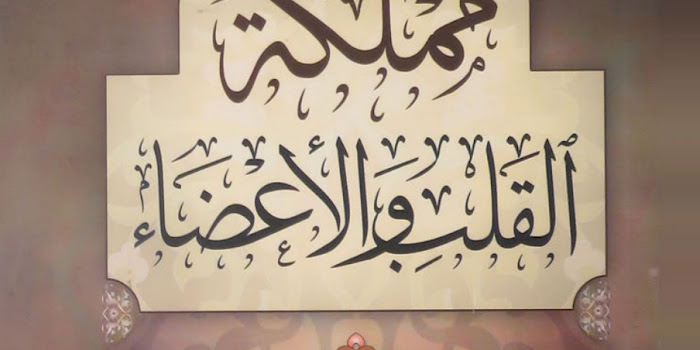 مملكة
القلب والأعضاء